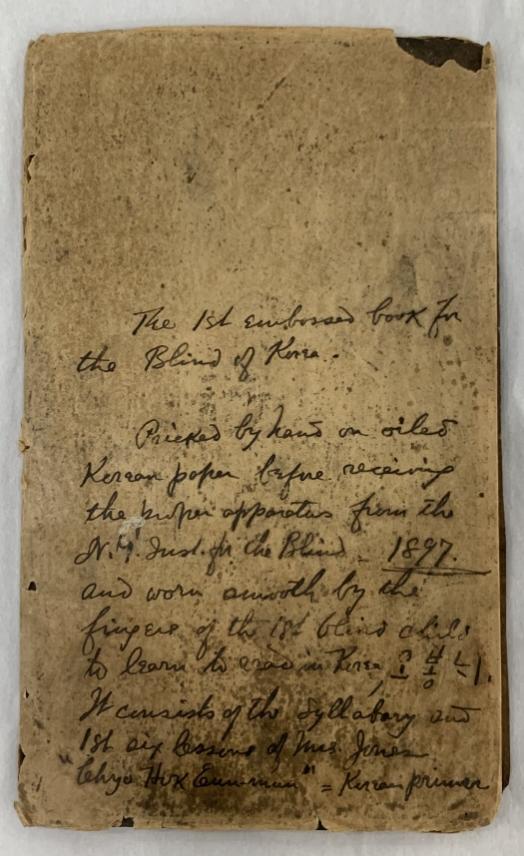 The 1st embossed book for
the Blind of Korea.
Pricked by hand on oiled
Korean paper before receiving
the proper apparatus from the
N.Y. Inst. for the Blind - 1897.
and worn smooth by the
fingers of the 1st blind child
to learn to read in Korea,
It consists of the Syllabary and
1st six lessons of Mrs. Jones
"Chyo Hok Eummun" = Korean primer